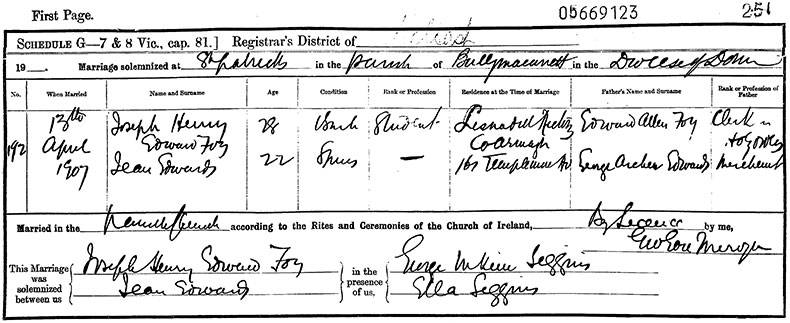 First Page.
05669123
251
SCHEDULE G—7 & 8 Vic., cap. 81.] Registrar's District of
19 . Marriage solemnized at St Patricks in the Parish of Ballymacarrett in the Diocese of Down
No. When Married Name and Surname Age Condition Rank or Profession Residence at the Time of Marriage Father's Name and Surname Rank or Profession of Father
192 13th April 1907
Joseph Henry Edward Foy 28 Bach Student Co Armagh Edward Allen Foy Clerk in Holy Orders
Jean Edwards 22 Spins — 167 Templemore Av George Archer Edwards Merchant
Married in the Parish Church according to the Rites and Ceremonies of the Church of Ireland, By Licence by me,
This Marriage was solemnized between us { Joseph Henry Edward Foy
Jean Edwards
in the presence of us, { George Seggins
Ella Seggins